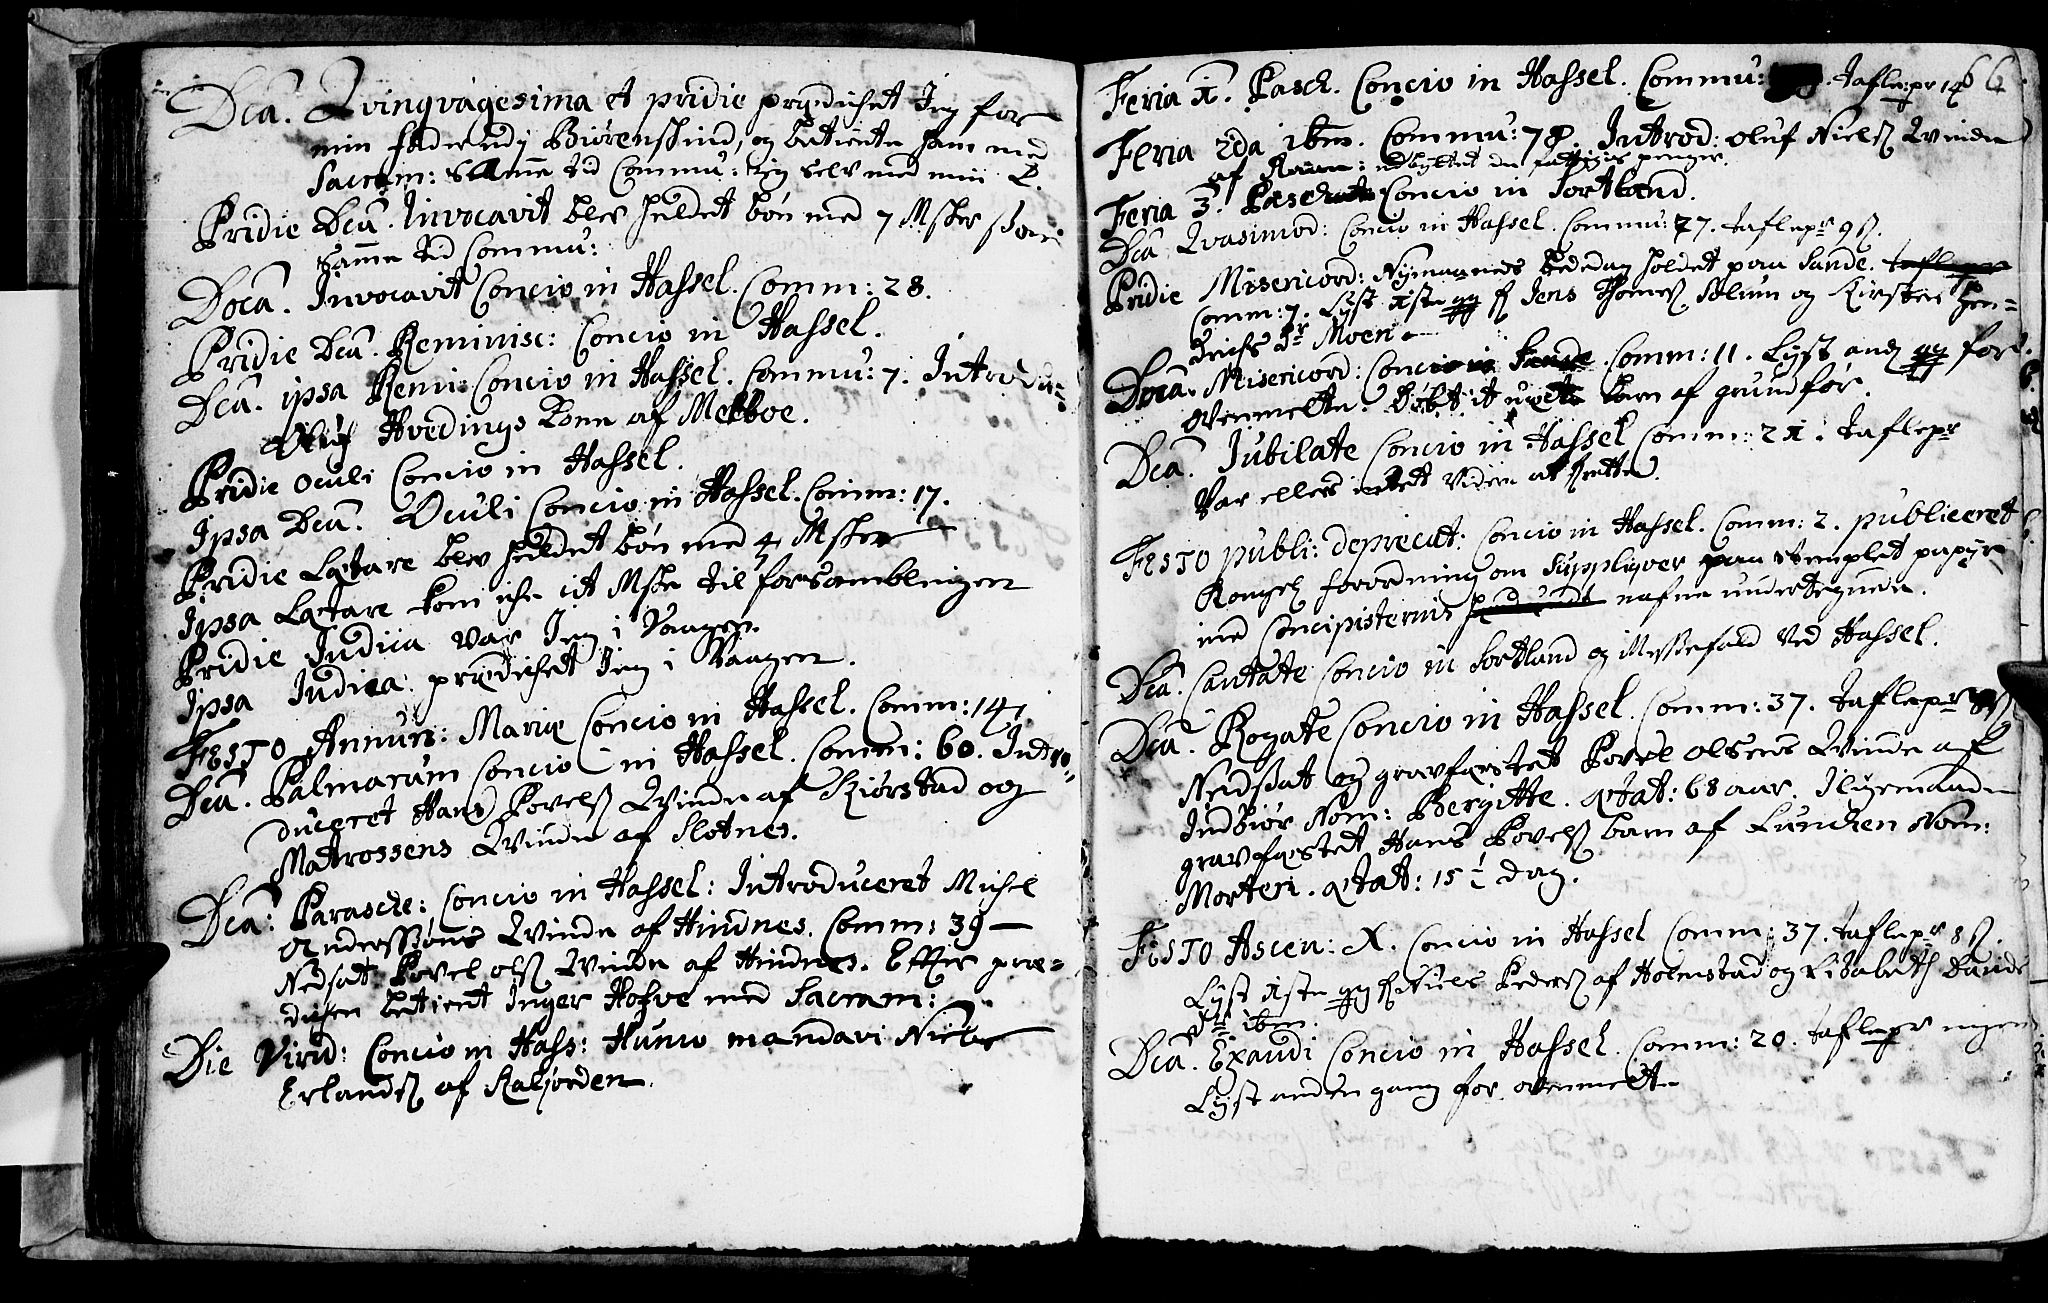 Dca. Qvingvagesima et pridie prædichet Jeg for
min fader udj Biörenskind, og betiente ham med
Sacram: Samme tid Commu: Jeg selv med min
Pridie Dca. Invocavit blev holdet bön med 7 Msker som
samme tid Commu:
Doca. Invocavit Concio in Hassel. Comm: 28.
Pridie Dca. Reminisc: Concio in Hassel.
Dca. ipsa Remi: Concio in Hassel. Commu: 7. Introdu-
Hvedings Kone af Melboe.
Pridie Oculi Concio in Hassel.
Ipsa Dca. Oculi Concio in Hassel. Comm: 17.
Pridie Lætare blev holdet bön med 4 Msker
Ipsa Lætare kom iche it Mske til forsamblingen
Pridie Judica var Jeg i Vaagen
Ipsa Judica prædichet Jeg i Vaagen.
FESTO Annunt: Mariæ Concio in Hassel. Comm: 14.
Dca. Palmarum Concio in Hassel. Comm: 60. Intro-
duceret Hans Povels Qvinde af Kiörstad og
Matrossens Qvinde af Slotnes.
Dca: Parascke: Concio in Hassel: Introduceret Michel
Anderssöns Qvinde af Hindnes. Comm: 39 —
Nedsat Povel ols Qvinde af Hindnes. Efter præ-
dichen betient Inger Hofve med Sacram:
Die Virid: Concio in Hass: Hunc mandavi Niels
Erlands af Kalfjorden.
66
Feria 1. Pasch. Concio in Hassel. Commu: . Taflepr 14
Feria 2da ibm. Commu: 78. Introd: Oluf Niels Qvinde
af : udbyttet de fattiges penger.
Feria 3. Paschate Concio in Sortland.
Dca Qvasimod: Concio in Hassel. Commu: 27. Taflepr 9 s.
Pridie Misericord: Nymaaneds bededag holdet paa Sande.
Comm: 7. Lyst 1ste gg f Jens Thomes Solum og Kirsten Hen-
drichs dr Moen.
Doca. Misericord: Concio in Sande. Comm: 11. Lyst and gg for
ovenmelte. Döbt it barn af grundför.
Dca. Jubilate Concio in Hassel Comm: 21. Taflepr
Var ellers intet Videre at forrette.
FESTO publi: deprecat: Concio in Hassel. Comm: 2. publiceret
Kongel forordning om Suppliqver paa stemplet papir
med Concipisternis nafne undertegnede.
Dca. Cantate Concio in Sortland og Messefald ved Hassel.
Dca. Rogate Concio in Hassel. Comm: 37. Taflepr 8 s
Nedsat og gravfæstet Povel Olsens Qvinde af
Indbiör Nom: Bergitte. ætat: 68 aar. Iligemaade
gravfæstet Hans Povels barn af Lunchen Nom:
Morten. ætat: 15 1/2 dag.
FESTO Ascen: X. Concio in Hassel Comm: 37. Taflepr 8 s.
Lyst 1ste gg f Niels Peders af Holmstad og Lisabeth Davids
dr ibm.
Dca. Exaudi Concio in Hassel. Comm: 20. Taflepr ingen
Lyst anden gang for ovenmelte